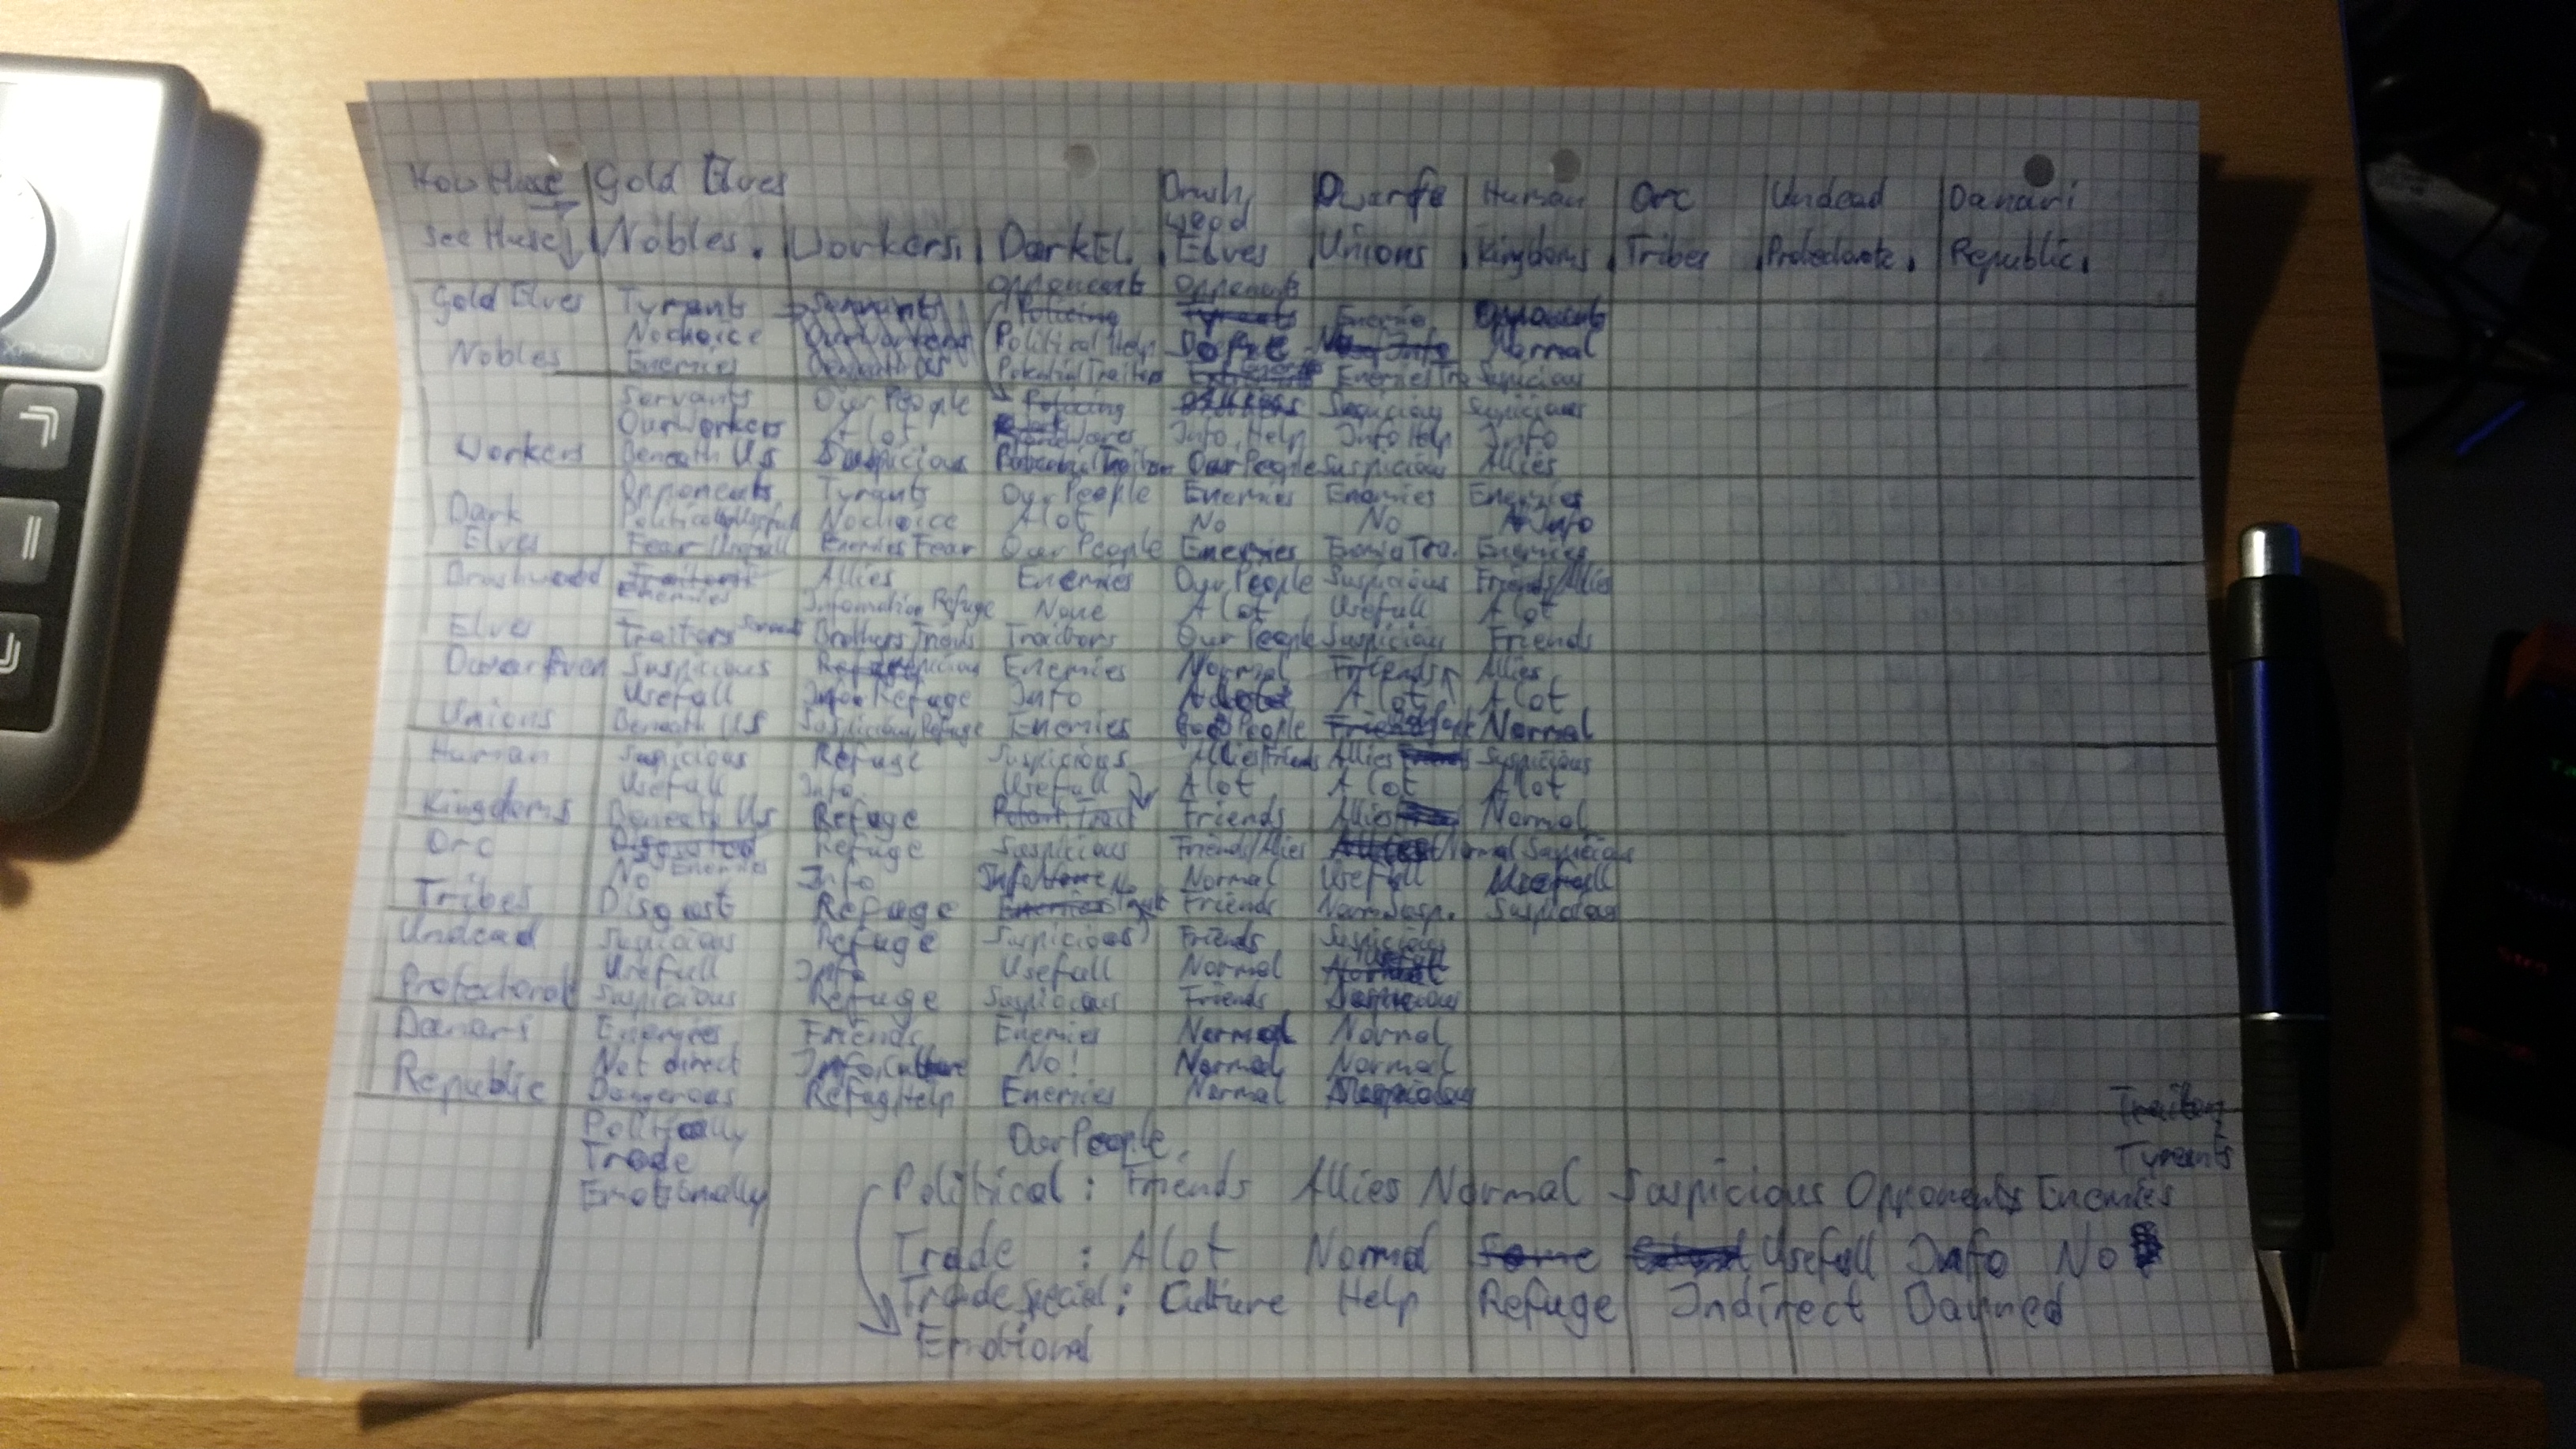 How these Gold Elves Brushwood Dwarfe Human Orc Undead Danari
See these Nobles. Workers. Dark El. Elves Unions Kingdoms Tribes Protectorate. Republic.
Opponents Opponents
Gold Elves Tyrants Servants Policing Tyrants Opponents
Nochoice Our Workers Political Help Normal
Nobles Enemies Beneath Us Potential Traitors Enemies Suspicious
Servants Our People Policing Suspicious Suspicious
Our Workers A lot Info, Help Info Help Info
Workers Beneath Us Suspicious Our People Suspicious Allies
Opponents Tyrants Our People Enemies Enemies Enemies
Dark Politically Usefull Nochoice A lot No No Info
Elves Fear Usefull Enemies Fear Our People Enemies Enemies
Brushwood Traitors Allies Enemies Our People Suspicious Friends/Allies
Enemies Information Refuge None A lot Usefull A lot
Elves Traitors Brothers Traitors Our People Suspicious Friends
Dwarfven Suspicious Enemies Normal Friends Allies
Usefull Info Refuge Info A lot A lot
Unions Beneath US Suspicious/Refuge Enemies People Normal
Human Suspicious Refuge Suspicious Allies/Friends Allies Suspicious
Usefull Info Usefull A lot A lot A lot
Kingdoms Beneath Us Refuge Friends Allies Normal
Orc Disgusted Refuge Suspicious Friends/Allies Normal Suspicious
No Enemies Info Info None No Normal Usefull Usefull
Tribes Disgust Refuge Enemies Friends Norm Susp. Suspicious
Undead Suspicious Refuge Suspicious Friends Suspicious
Usefull Info Usefull Normal Usefull Normal
Protectorat Suspicious Refuge Suspicious Friends Suspicious
Danari Enemies Friends Enemies Normal Normal
Not direct Info, Culture No! Normal Normal
Republic Dangerous Refug/Help Enemies Normal Suspicious
Traitors
Politically Our People,
Trade Tyrants
Emotionally Political : Friends Allies Normal Suspicious Opponents Enemies
Trade : A lot Normal Some Usefull Info No
Trade Special : Culture Help Refuge Indirect Damned
Emotional